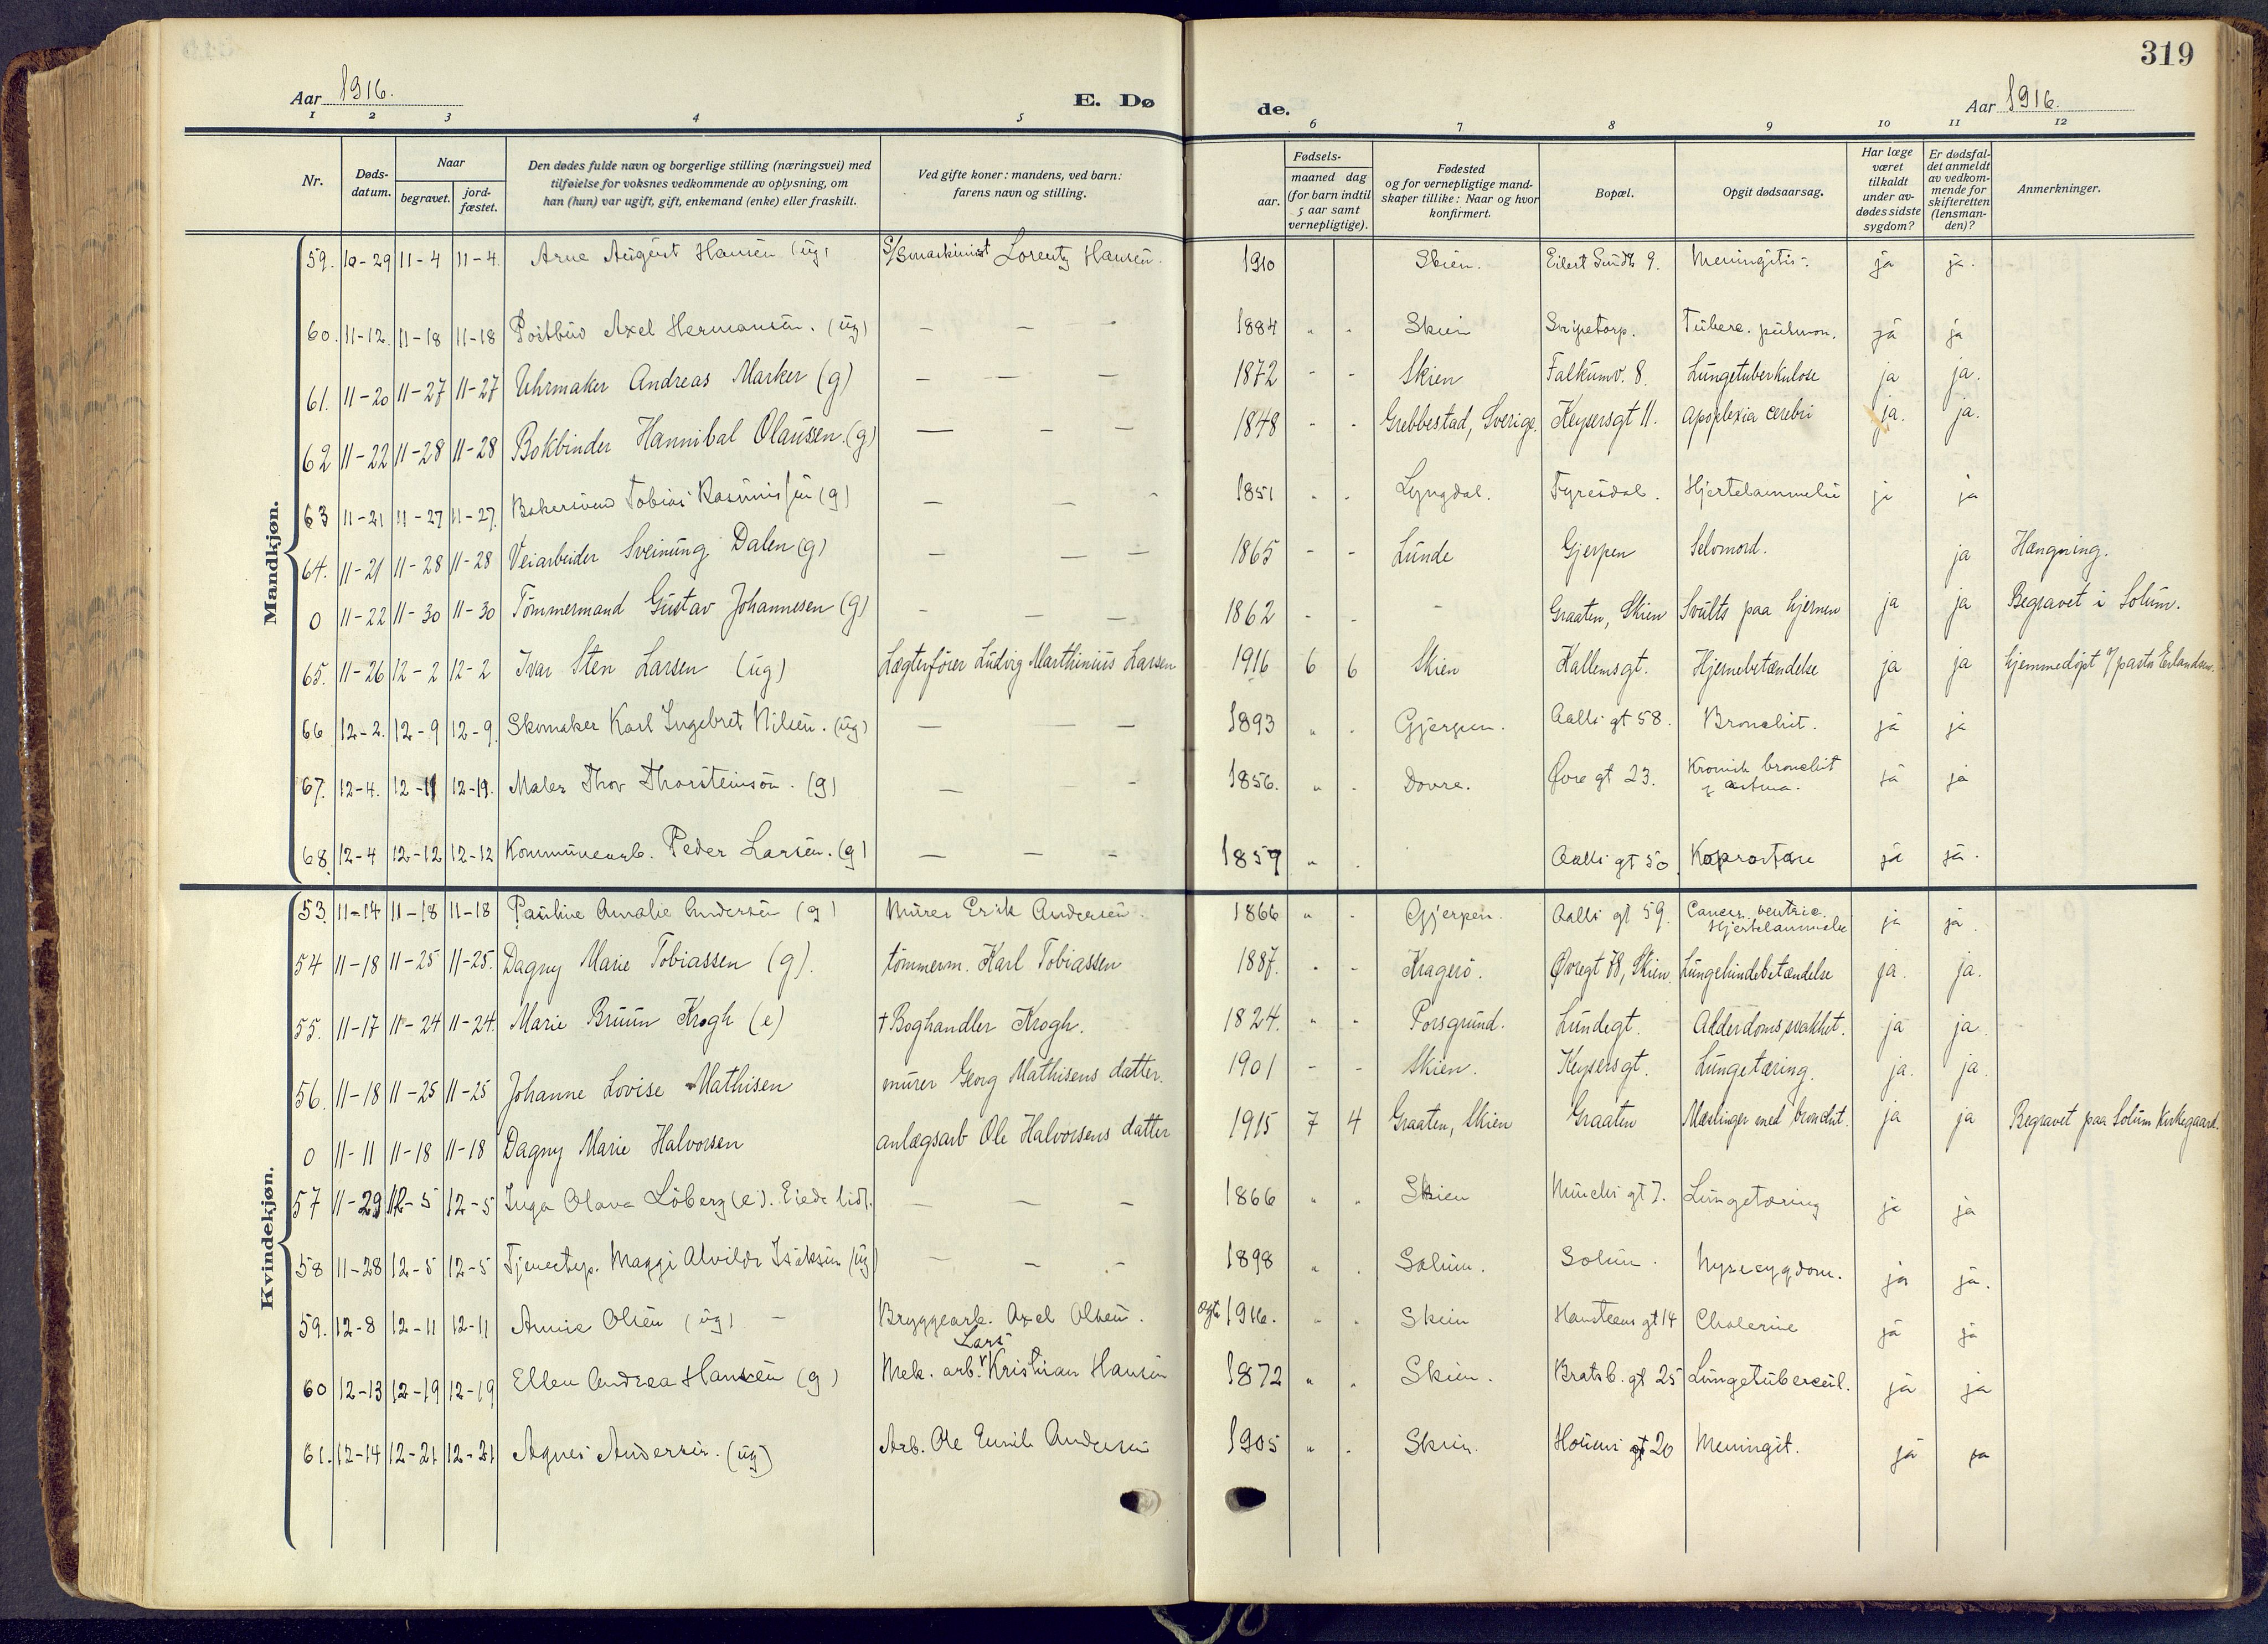 319
Aar 1916. E. Dø de. Aar 1916.
1 2 3 4 5 6 7 8 9 10 11 12
Nr. Døds-datum. Naar begravet. jord-fæstet. Den dødes fulde navn og borgerlige stilling (næringsvei) med tilføielse for voksnes vedkommende av oplysning, om han (hun) var ugift, gift, enkemand (enke) eller fraskilt. Ved gifte koner: mandens, ved barn: farens navn og stilling. Fødsels- aar. maaned dag (for barn indtil 5 aar samt vernepligtige). Fødested og for vernepligtige mand-skaper tillike: Naar og hvor konfirmert. Bopæl. Opgit dødsaarsag. Har læge været tilkaldt under av-dødes sidste sygdom? Er dødsfal-det anmeldt av vedkom-mende for skifteretten (lensman-den)? Anmerkninger.
Mandkjøn.
59. 10-29 11-4 11-4. Arne August Hansen (ug) S/Smaskinist Lorentz Hansen. 1910 Skien. Eilert Sundts 9. Meningitis. ja ja.
60. 11-12. 11-18 11-18 Postbud Axel Hermansen. (ug) — — - 1884 " - Skien Snipetorp. Tuberc. pulmon. ja ja
61. 11-20 11-27 11-27 Uhrmaker Andreas Marker (g) — — — 1872 - - Skien Falkumv. 8. Lungetuberkulose ja ja.
62 11-22 11-28 11-28 Bokbinder Hannibal Olaussen. (g) — - — 1848 - - Grebbestad, Sverige. Keysersgt 11. Apoplexia cerebri ja. ja.
63 11-21 11-27 11-27. Bakersvend Tobias Rasmussen (g) — — - 1851 " - Lyngdal. Fyresdal. Hjertelammelse ja ja
64. 11-21 11-28 11-28 Veiarbeider Sveinung Dalen (g) — — — 1865 - - Lunde Gjerpen Selvmord. ja Hængning.
0 11-22 11-30 11-30 Tømmermand Gustav Johannesen (g) - — — 1862 - - - Graaten, Skien Svulst paa hjernen ja ja Begravet i Solum.
65. 11-26 12-2 12-2 Ivar Sten Larsen (ug) Lægterfører Ludvig Marthinius Larsen 1916 6 6 Skien Kallemsgt. Hjernebetændelse ja ja hjemmedøpt af pastor Erlandsen.
66 12-2. 12-9 12-9. Skomaker Karl Ingebret Nilsen. (ug) — — — 1893 " - Gjerpen. Aalls gt 58. Bronchit. ja ja
67. 12-4. 12-11 12-19. Maler Thov Thorsteinsøn. (g) — - 1856. " - Dovre. Øvre gt 23. Kronisk bronchit & astma. ja ja
68. 12-4 12-12 12-12 Kommunearb. Peder Larsen. (g) — — - 1859 " . Aalls gt 50 Koprostase ja ja.
Kvindekjøn.
53. 11-14 11-18 11-18 Pauline Amalie Andersen (g) Murer Erik Andersen. 1866 " - Gjerpen. Aalls gt 59. Cancer. ventric. Hjertelammelse ja ja.
54 11-18 11-25 11-25. Dagny Marie Tobiassen (g). tømmerm. Karl Tobiassen 1887. - - Kragerø. Øvregt 78, Skien. Lungehindebetændelse ja. ja.
55. 11-17 11-24 11-24. Marie Bruun Krogh (e) † Boghandler Krogh. 1824. " - Porsgrund. Lundegt. Alderdomssvakhet. ja ja.
56. 11-18 11-25 11-25 Johanne Lovise Mathisen murer Georg Mathisens datter. 1901 - - Skien. Keysersgt. Lungetæring. ja. ja.
0 11-11 11-18 11-18 Dagny Marie Halvorsen anlægsarb Ole Halvorsens datter 1915 7 4 Graaten, Skien Graaten Mæslinger med bronchit. ja ja Begravet paa Solum Kirkegaard.
57 11-29 12-5 12-5 Inga Olava Löberg (e). — — - 1866 " " Skien Munchs gt 7. Lungetæring ja ja
58 11-28 12-5 12-5 Tjenestep. Maggi Alvilde Isaksen (ug) — — - 1898 " . Solum. Solum. Nyresygdom. ja ja.
59. 12-8 12-11 12-11 Annie Olsen (ug) - Bryggearb. Axel Olsen. 1916. " " Skien Hansteens gt 14 Cholerine ja ja
60 12-13 12-19 12-19 Ellen Andrea Hansen (g) Mek. arb. Lars Kristian Hansen 1872 " " Skien. Bratsb. gt 25 Lungetubercul. ja ja
61. 12-14 12-21 12-21 Agnes Andersen. (ug) Arb. Ole Emil Andersen 1905 " - Skien. gt 20 Meningit. ja ja